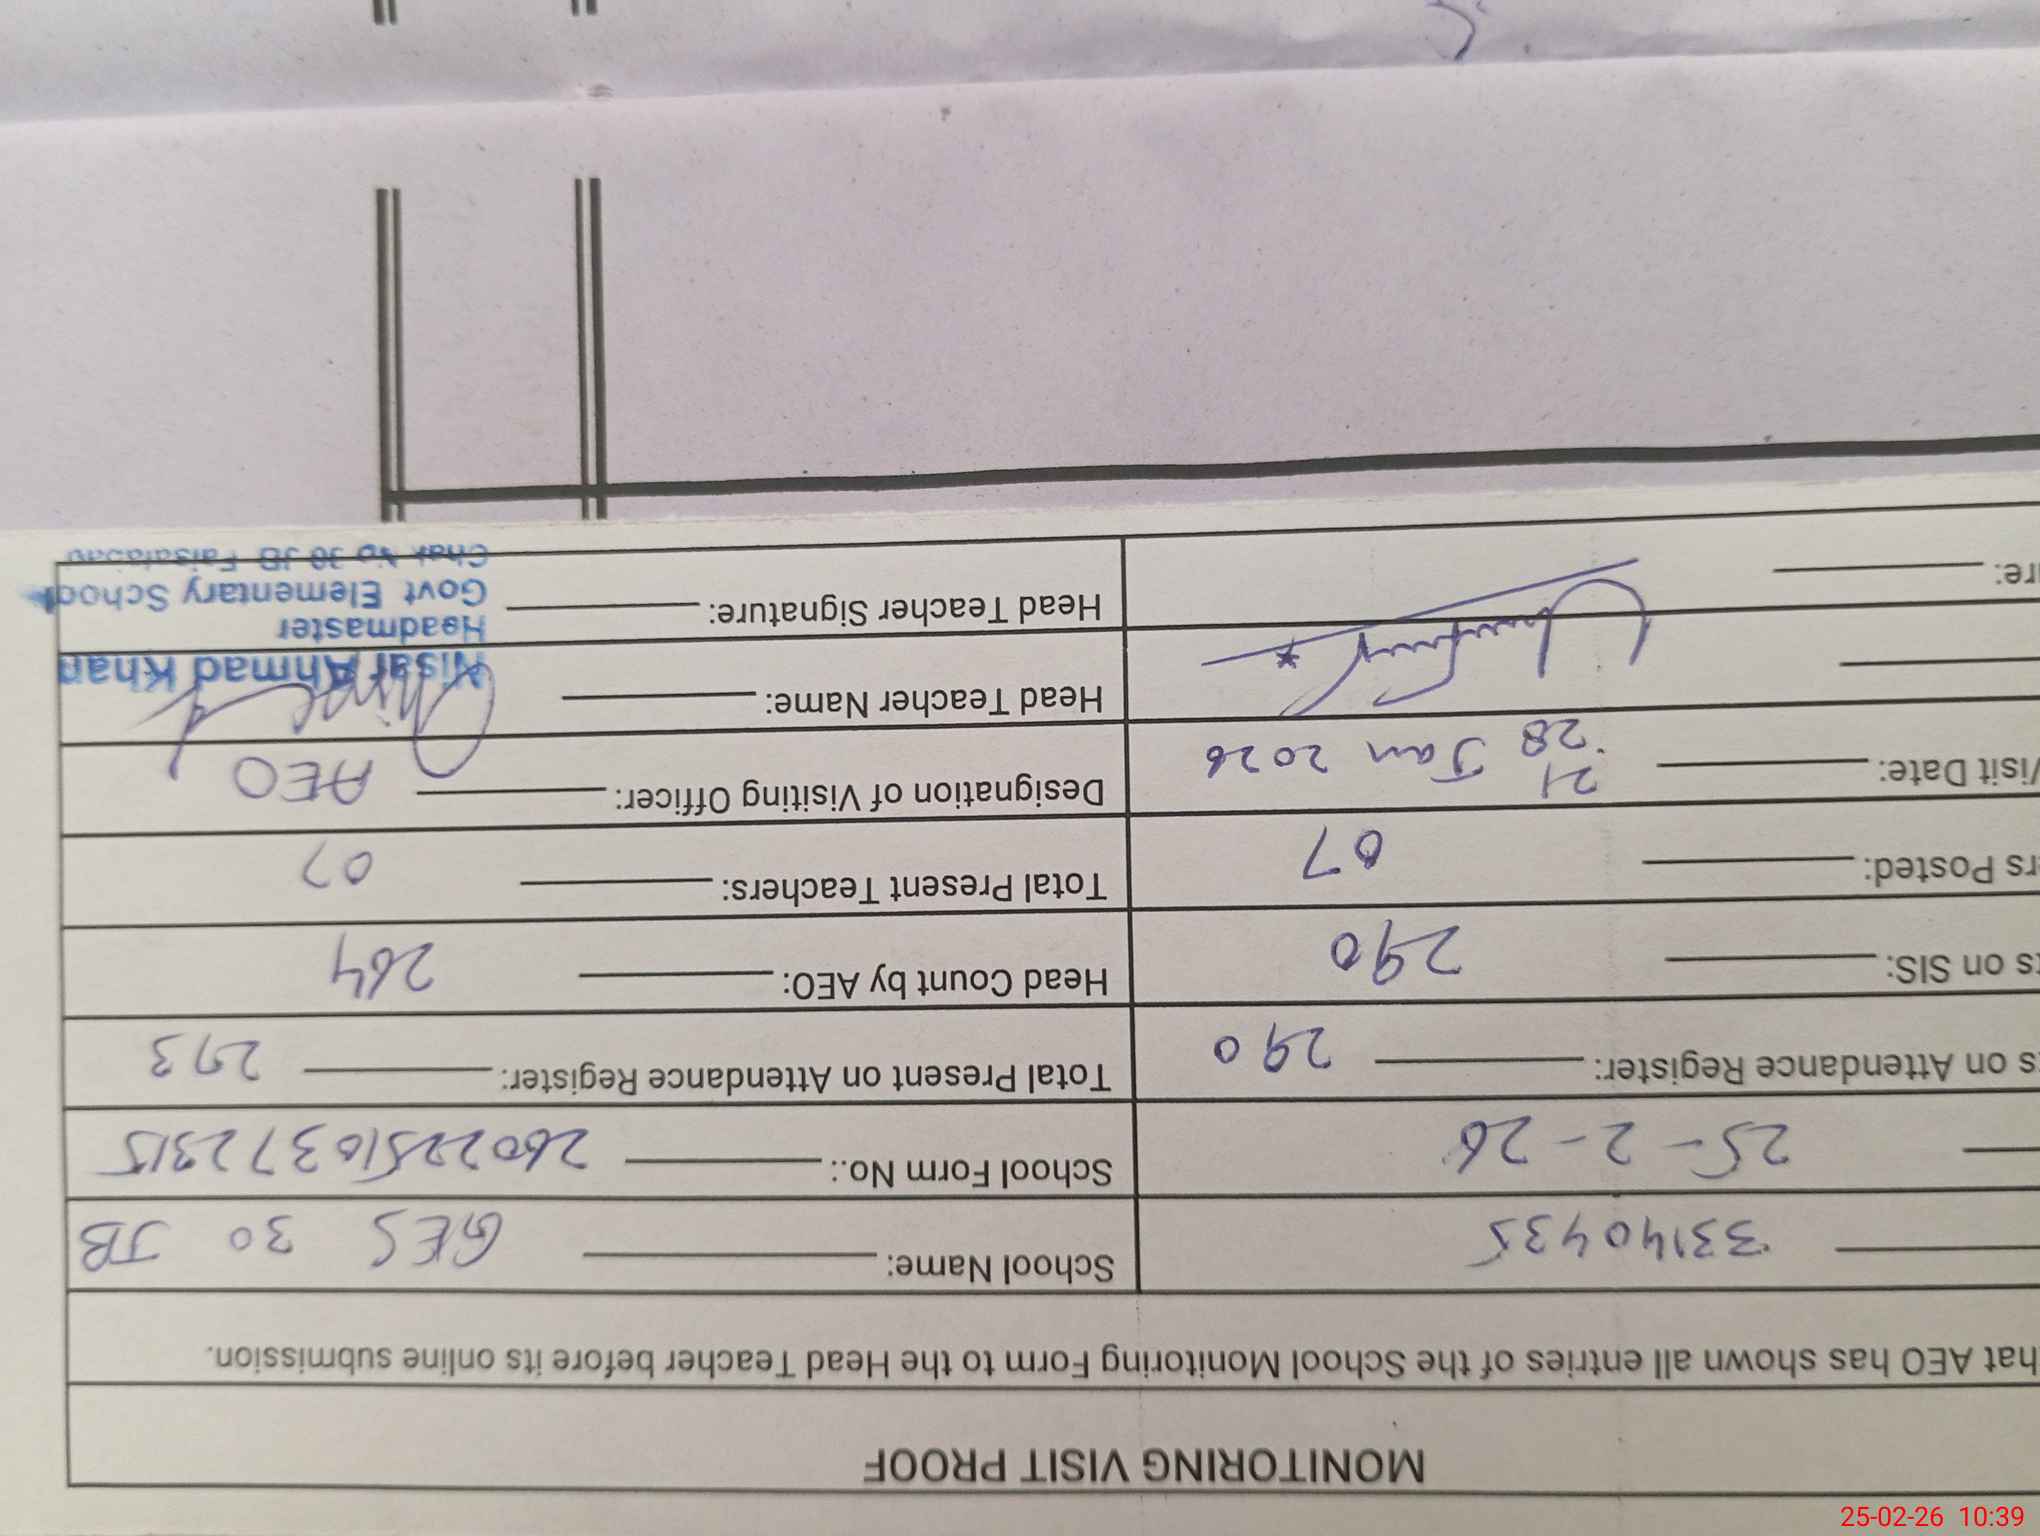 MONITORING VISIT PROOF
hat AEO has shown all entries of the School Monitoring Form to the Head Teacher before its online submission.
33140435 School Name: GES 30 JB
25-2-26 School Form No.: 26022510372315
s on Attendance Register: 290 Total Present on Attendance Register: 273
s on SIS: 290 Head Count by AEO: 264
rs Posted: 07 Total Present Teachers: 07
Visit Date: 21
28 Jan 2026 Designation of Visiting Officer: AEO
Head Teacher Name: Nisar Ahmad Khan
Headmaster
re: Head Teacher Signature: Govt Elementary School
Chak No 30 JB Faisalabad
25-02-26 10:39